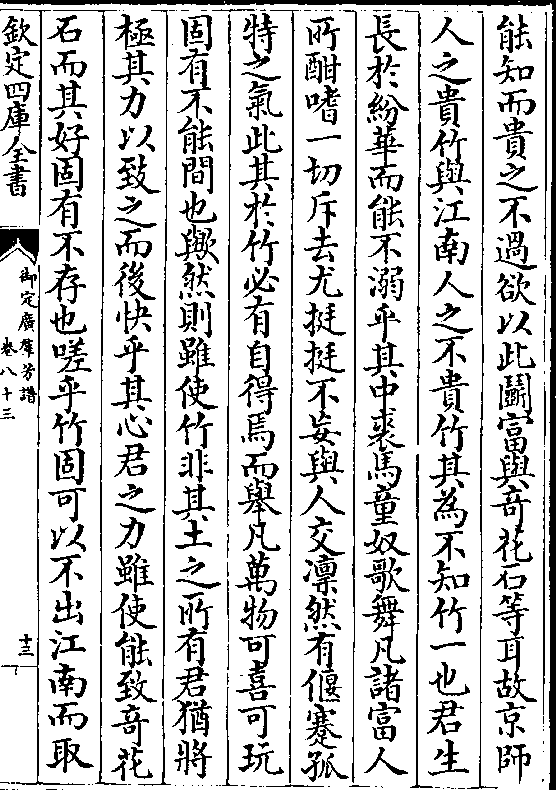 能知而貴之不過欲以此鬬富與奇花石等耳故京師
人之貴竹與江南人之不貴竹其為不知竹一也君生
長於紛華而能不溺乎其中裘馬童奴歌舞凡諸富人
所酣嗜一切斥去尤挺挺不妄與人交凛然有偃蹇孤
特之氣此其於竹必有自得焉而舉凡萬物可喜可玩
固有不能間也歟然則雖使竹非其土之所有君猶將
極其力以致之而後快乎其心君之力雖使能致奇花
石而其好固有不存也嗟乎竹固可以不出江南而取
欽定四庫全書
御定廣羣芳譜
卷八十三
十三